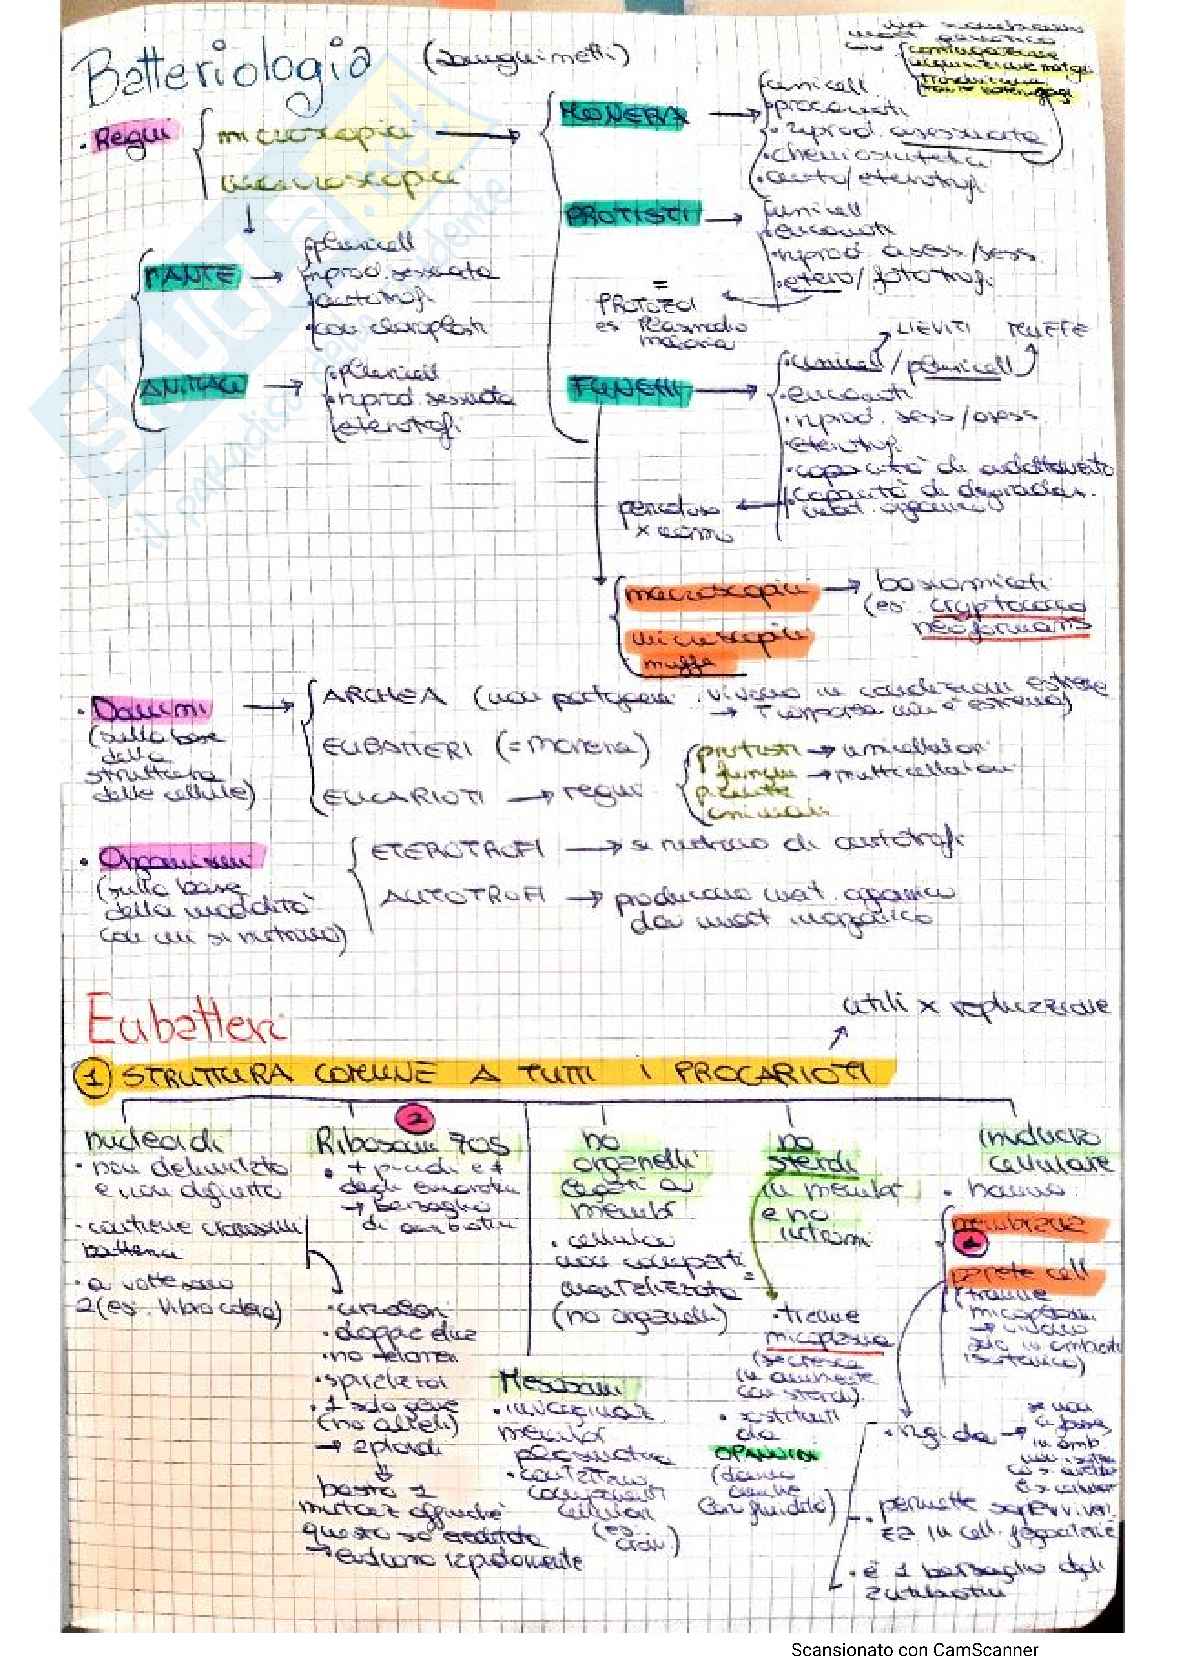 Batteriologia (Sanguinetti)
coniugazione
trasduzione
• Regni
microscopici
macroscopici
MONERA
unicell
procarioti
• riprod. asessuata
• chemiosintetici
• auto/eterotrofi
PROTISTI
unicell
eucarioti
riprod asess/sess
etero/fototrofi
=
PROTOZOI
es Plasmodio
malaria
PIANTE
pluricell
riprod. sessuata
autotrofi
con cloroplasti
ANIMALI
pluricell
riprod sessuata
eterotrofi
LIEVITI MUFFE
FUNGHI
• unicell/pluricell
• eucarioti
riprod. sess/asess
eterotrofi
• capacità di adattamento
• capacità di degradaz.
mat. organico
pericoloso
x uomo
macroscopici
basidiomiceti
(es. cryptococco
neoformans
microscopici
muffe
• Domini
(sulla base
della
struttura
delle cellule)
ARCHEA (non patogeni. vivono in condizioni estreme
EUBATTERI (= monera)
EUCARIOTI → regni
protisti → unicellulari
funghi → multicellulari
piante
animali
• Organismi
(sulla base
della modalità
con cui si nutrono)
ETEROTROFI → si nutrono di autotrofi
AUTOTROFI → producono mat. organico
da mat inorganico
Eubatteri
utili x replicazione
1 STRUTTURA COMUNE A TUTTI I PROCARIOTI
nucleoidi
• non delimitato
e non definito
• contiene cromosomi
batterica
• a volte sono
2 (es. Vibrio colera)
2
Ribosomi 70S
• + piccoli e ≠
degli eucarioti
→ bersaglio
di antibiotici
• circolari
• doppia elica
• no telomeri
• spiralizzati
• 1 solo gene
(no alleli)
→ aploidi
basta 1
mutaz affinché
questa sia ereditata
→ evolvono rapidamente
Mesosomi
• invaginaz
membr
plasmatica
• contattano
componenti
cellulari
no
organelli
legati a
membr
• cellula
non comparti
mentalizzata
(no organelli)
no
steroli
in membr
e no
istoni
• tranne
micoplasma
(si cresce
in ambiente
con steroli)
• sostituiti
da
OPANOIDI
(danno
anche
fluidità)
involucro
cellulare
• hanno
membrana
1
parete cell
(tranne
micoplasmi
→ vivono
solo in ambiente
isotonico)
• rigida → se non
ci fosse
in amb
• permette sopravviven
za in cell. fagocitarie
• è 1 bersaglio degli
antibiotici
SKUOLA.net
il paradiso dello studente
Scansionato con CamScanner